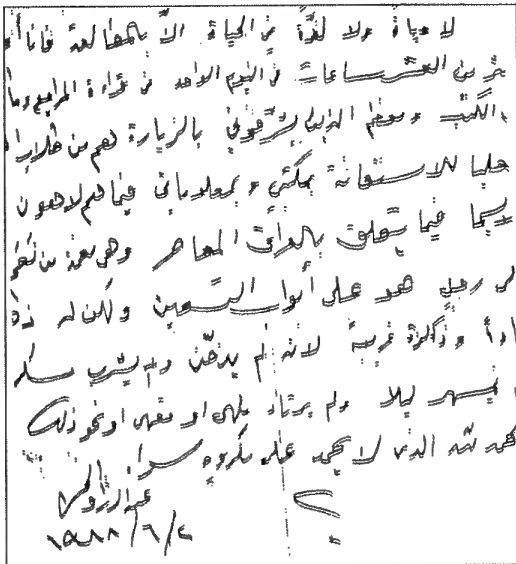 لا حياة ولا لذة في الحياة الا بالمطالعة فانا
من العشر ساعات في اليوم الواحد في قراءة المراجع
الكتب ومعظم الذين يشرفوني بالزيارة هم من طلاب
للاستعانة بمكتبتي وبمعلوماتي فيما هم لاهون
سيما فيما يتعلق بالعراق المعاصر وهي نعمة من
رجل هو على أبواب التسعين ولكن له
وذاكرة غريبة لانه لم يدخن ولم يشرب
يسهر ليلا ولم يرتاد ملهى او مقهى او نحو ذلك
لله الذي لا يحمد على مكروه سواه
عبد الرزاق
١٩٨٨/٦/٤